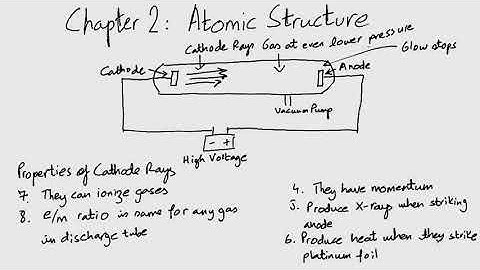 Chapter 2: Atomic Structure
Cathode Rays Gas at even lower pressure
Cathode
Glow stops
Anode
Vacuum Pump
- +
High Voltage
Properties of Cathode Rays
7. They can ionize gases
8. e/m ratio is same for any gas
in discharge tube
4. They have momentum
5. Produce X-rays when striking
anode
6. Produce heat when they strike
platinum foil